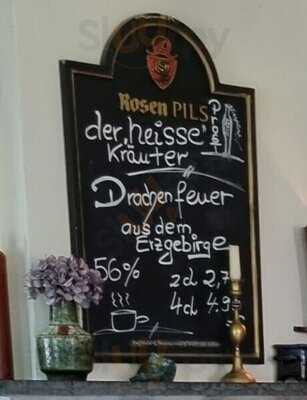 Rosen PILS
Prost
der "heisse"
Kräuter
Drachenfeuer
aus dem
Erzgebirge
56%
2cl 2,7
4cl 4.9